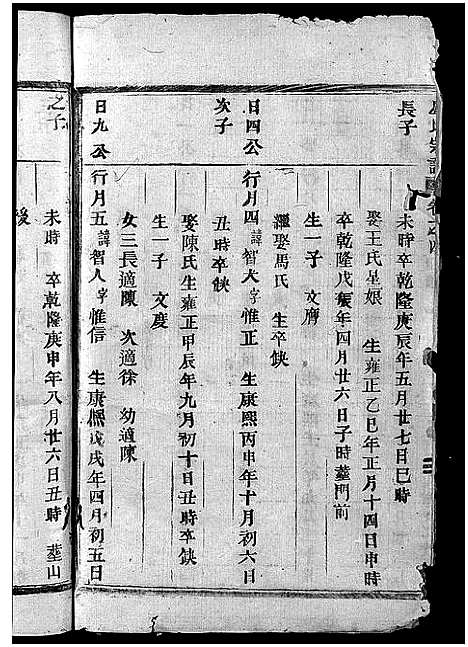 長子
未時卒乾隆庚辰年五月廿七日巳時
娶王氏星娘 生雍正乙巳年正月十四日申時
卒乾隆戊辰年四月廿六日子時 塟門前
生一子 文
繼娶馬氏 生卒缺
日四公 行月四 諱智大 字惟正 生康熙丙申年十月初六日
次子
丑時卒缺
娶陳氏 生雍正甲辰年九月初十日丑時 卒缺
生一子 文度
女三 長適陳 次適徐 幼適陳
日九公 行月五 諱智人 字惟信 生康熙戊戌年四月初五日
之子
未時 卒乾隆庚申年八月廿六日丑時 塟山
後